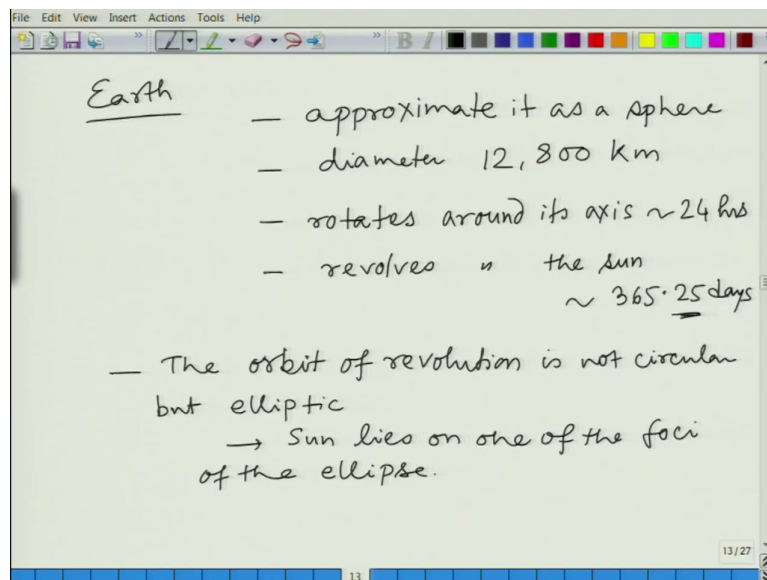 File Edit View Insert Actions Tools Help
B I
Earth
— approximate it as a sphere
— diameter 12,800 Km
— rotates around its axis ~ 24 hrs
— revolves " the sun
~ 365.25 days
— The orbit of revolution is not circular
but elliptic
→ Sun lies on one of the foci
of the ellipse.
13/27
13